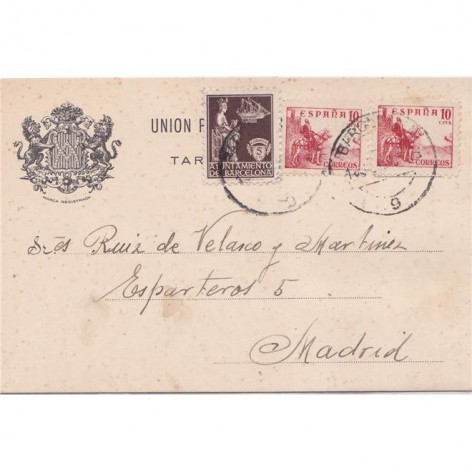 MARCA REGISTRADA
UNION
TAR
AYUNTAMIENTO
DE BARCELONA
5
ESPAÑA 10
CORREOS
ESPAÑA 10
CTS.
CORREOS
Sres Ruiz de Velasco y Martinez
Esparteros 5
Madrid